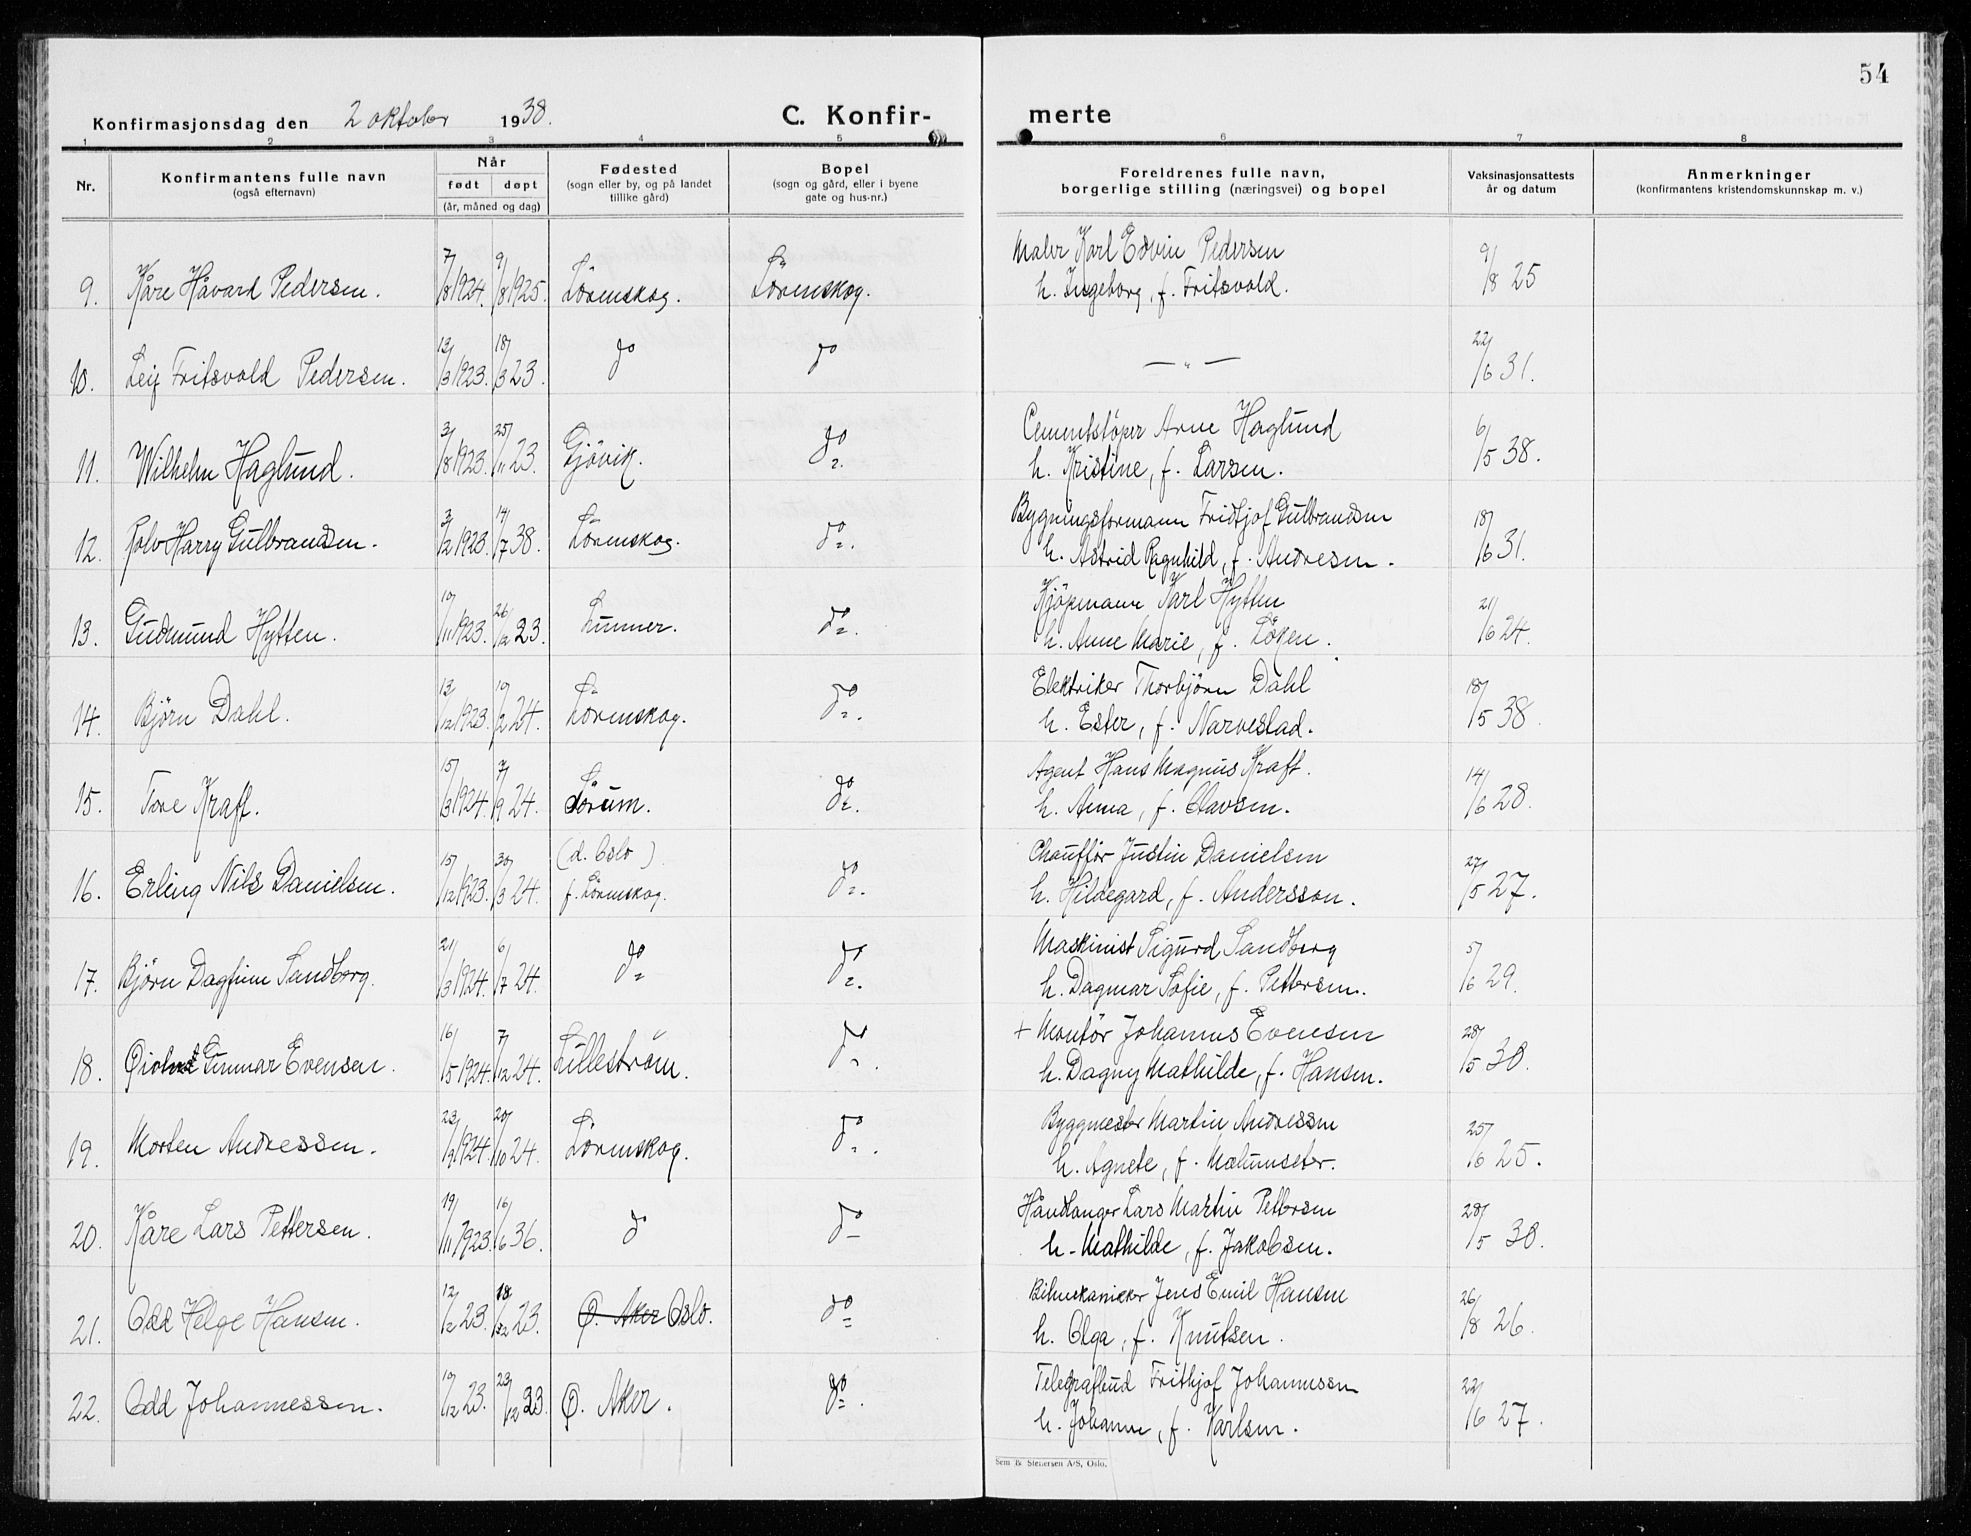 54
Konfirmasjonsdag den 2 oktober 1938.
C. Konfir-
merte
1 2 3 4 5 6 7 8
Nr.
Konfirmantens fulle navn
(også efternavn)
Når
født døpt
(år, måned og dag)
Fødested
(sogn eller by, og på landet
tillike gård)
Bopel
(sogn og gård, eller i byene
gate og hus-nr.)
Foreldrenes fulle navn,
borgerlige stilling (næringsvei) og bopel
Vaksinasjonsattests
år og datum
Anmerkninger
(konfirmantens kristendomskunnskap m. v.)
Maler Karl Edvin Pedersen
9. Kåre Håvard Pedersen. 7/8 1924. 9/8 1925. Lørenskog. Lørenskog. h. Ingeborg, f. Fritsvold. 9/8 25
10. Leif Fritsvold Pedersen. 13/3 1923. 18/3 23. do do — " — 22/6 31.
Cementstøper Arne Haglund
11. Wilhelm Haglund. 3/8 1923. 25/11 23. Gjøvik. do. h. Kristine, f. Larsen. 6/5 38.
Bygningsformann Fridtjof Gulbrandsen
12. Rolv Harry Gulbrandsen. 3/2 1923. 14/7 38. Lørenskog. do. h. Astrid Ragnhild, f. Andresen. 18/6 31.
Kjøpmann Karl Hytten
13. Gudmund Hytten. 10/11 1923. 26/12 23. Lunner. do. h. Anne Marie, f. Løken. 21/6 24.
Elektriker Thorbjørn Dahl
14. Bjørn Dahl. 13/12 1923. 10/2 24. Lørenskog. do. h. Ester, f. Narvestad. 18/5 38.
Agent Hans Magnus Kraft.
15. Tore Kraft. 15/3 1924. 7/9 24. Sørum. do. h. Anna, f. Olavsen. 14/6 28.
(d. Oslo) Chauffør Justin Danielsen
16. Erling Nils Danielsen. 15/12 1923. 30/3 24. f. Lørenskog. do. h. Hildegard, f. Andersson. 27/5 27.
Maskinist Sigurd Sandberg
17. Bjørn Dagfinn Sandberg. 21/3 1924. 6/7 24. do do. h. Dagmar Sofie, f. Pettersen. 5/6 29.
+ Montør Johannes Evensen
18. Øivind Gunnar Evensen. 16/5 1924. 7/12 24. Lillestrøm. do. h. Dagny Mathilde, f. Hansen. 28/5 30.
Byggmester Martin Andressen
19. Morten Andressen. 23/9 1924. 20/10 24. Lørenskog. do. h. Agnete, f. Mæhumseter. 25/6 25.
Håndlanger Lars Martin Pettersen
20. Kåre Lars Pettersen. 19/11 1923. 16/6 36. do do h. Mathilde, f. Jakobsen. 28/5 30.
Bilmekaniker Jens Emil Hansen
21. Odd Helge Hansen. 12/2 23. 18/12 23. Ø. Aker Oslo. do h. Olga, f. Knutsen. 26/8 26.
Telegrafbud Frithjof Johannessen
22. Odd Johannessen. 10/12 23. 23/12 23. Ø. Aker. do. h. Johanne, f. Karlsen. 22/6 27.
Sem & Stenersen A/S, Oslo.